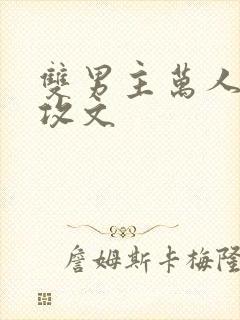 雙男主萬人
攻文
詹姆斯卡梅隆